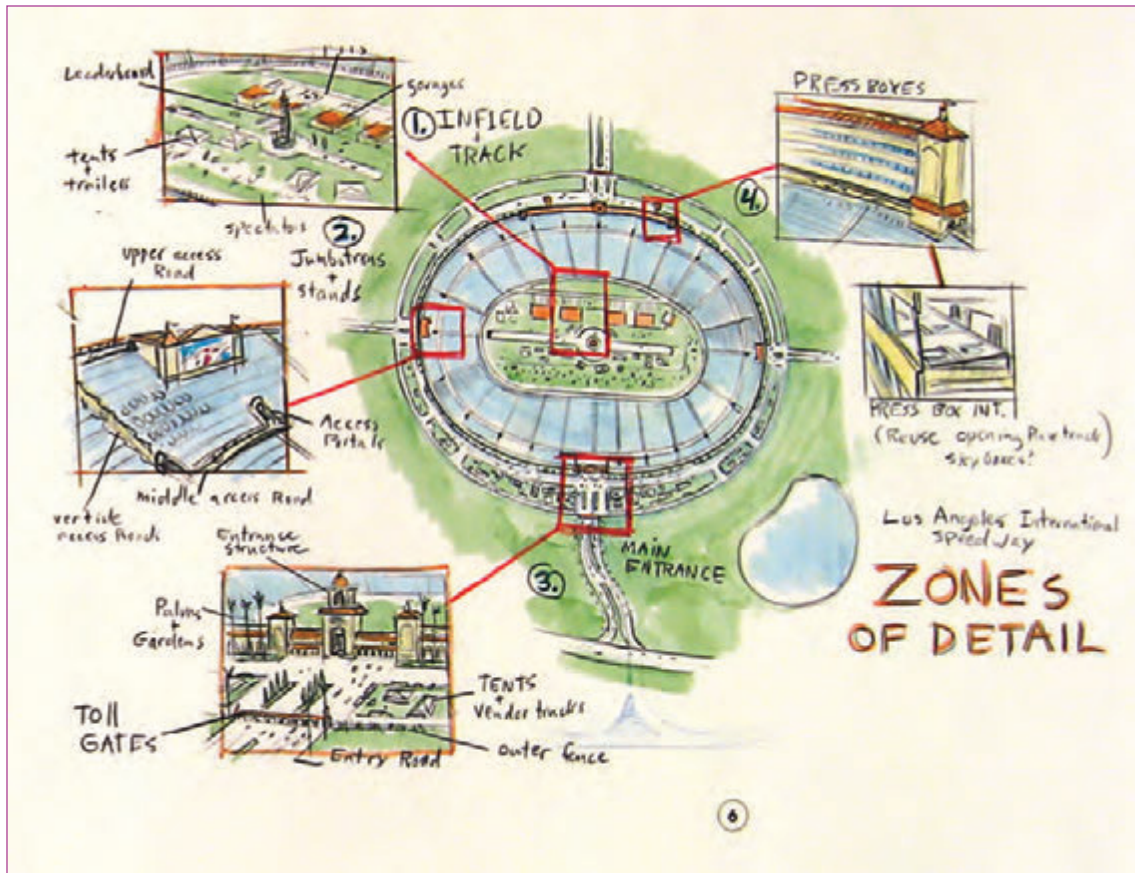 Leaderboard
garages
tents
+
trailers
spectators
1. INFIELD
+
TRACK
2.
Jumbotrons
+
stands
upper access
Road
Access
Portals
middle access Road
vertical
access Roads
Entrance
structure
3.
MAIN
ENTRANCE
Palms
+
Gardens
TENTS
+
Vendor trucks
Toll
GATES
outer fence
Entry Road
PRESS BOXES
4.
PRESS BOX INT.
(Reuse opening Racetrack)
sky boxes!
Los Angeles International
Speedway
ZONES
OF DETAIL
6